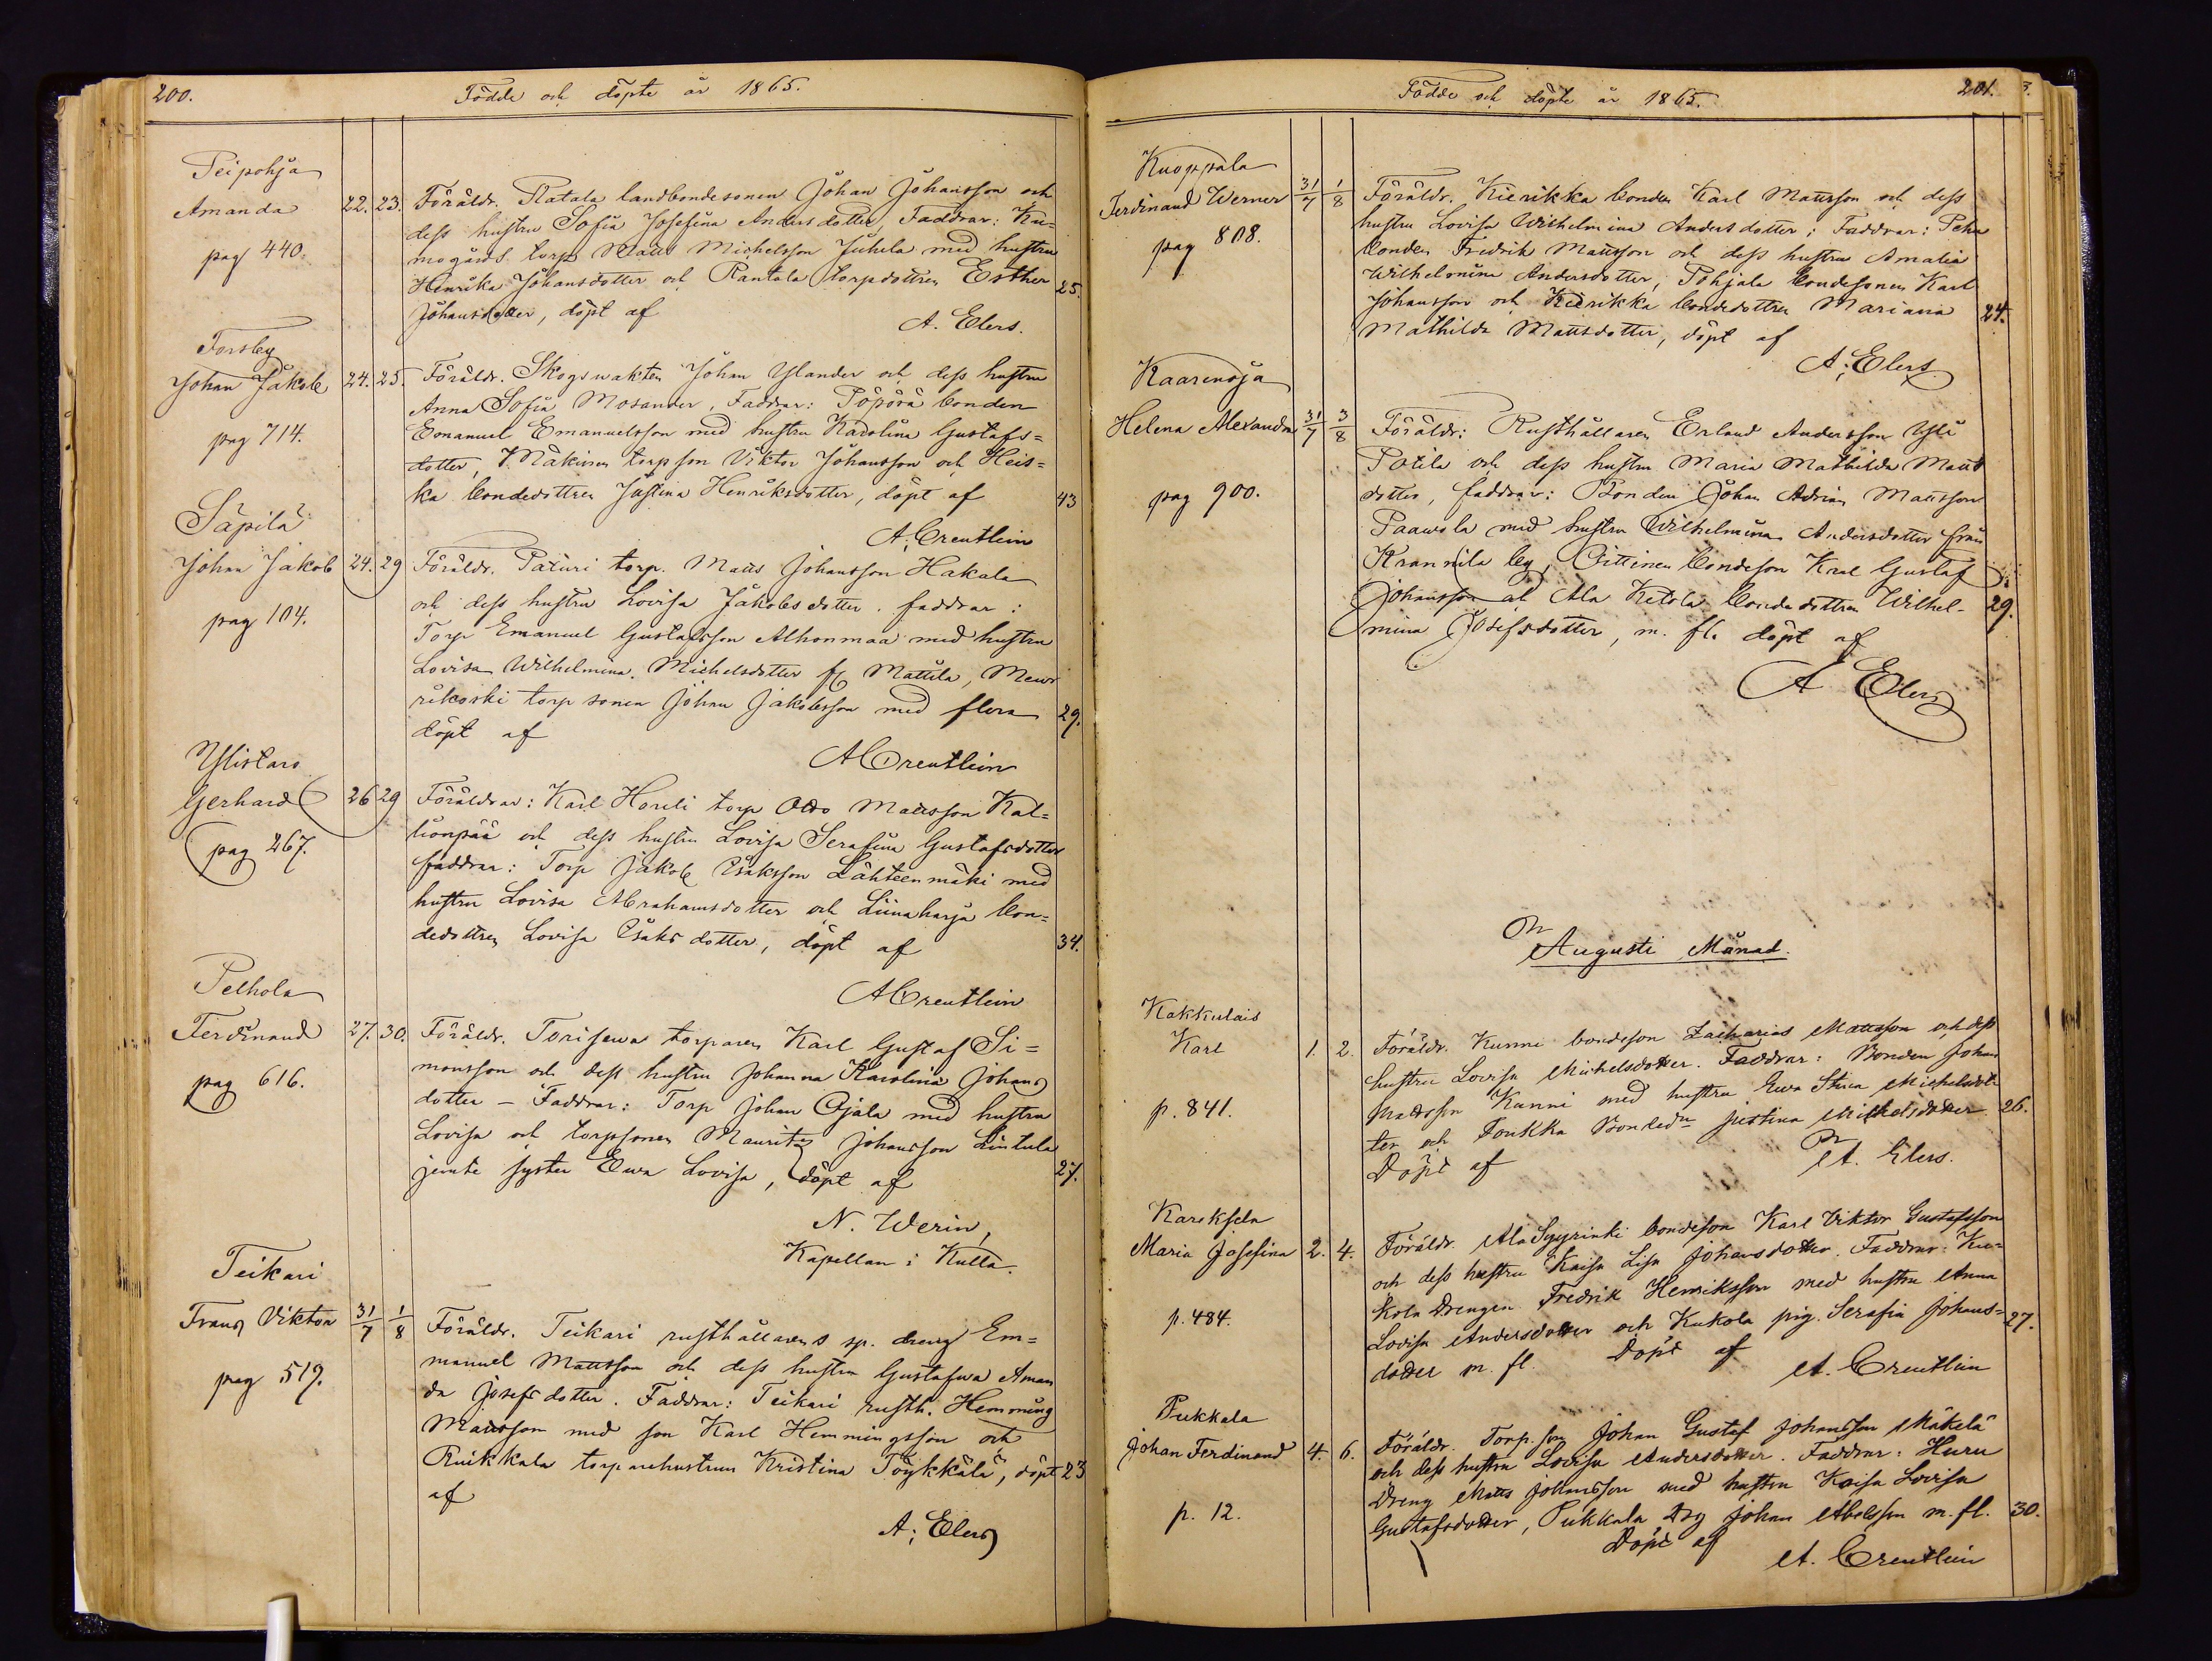 200.
Födde och döpte år 1865.
Peipohja
Amanda 22. 23. Föräldr. Ratala landbondesonen Johan Johansson och
dess hustru Sofia Josefina Andersdotter, Faddrar: Ku=
pag 440. mogårds torp Matts Michelsson Juhela med hustru
Henrika Johansdotter och Rantala torpdottren Esther 25.
Johansdotter, döpt af
A. Elers.
Forsby
Johan Jakob 24. 25. Föräldr. Skogswakten Johan Ylander och dess hustru
Anna Sofia Mosander, Faddrar: Pöpörä bonden
pag 714. Emanuel Emanuelsson med hustru Karolina Gustafs=
dotter, Mäkinen torpson Viktor Johansson och Heis=
ka bondedottren Justina Henriksdotter, döpt af 43
A. Creutlein
Säpilä
Johan Jakob 24. 29 Föräldr. Päturi torp. Matts Johansson Hakala
och dess hustru Lovisa Jakobsdotter. faddrar:
pag 104. Torp Emanuel Gustafsson Alhonmaa med hustru
Lovisa Wilhelmina Michelsdotter fr Mattila, Meur
rikoski torpsonen Johan Jakobsson med flera 29.
döpt af
A Creutlein
Ylistaro
Gerhard 26 29 Föräldrar: Karl Horeli torp Otto Mattsson Kal=
lionpää och dess hustru Lovisa Serafina Gustafsdotter
pag 267. faddrar: Torp Jakob Isaksson Lähteenmäki med
hustru Lovisa Abrahamsdotter och Liinaharja bon=
dedottren Lovisa Isaksdotter, döpt af 34.
A Creutlein
Pelhola
Ferdinand 27. 30. Föräldr. Torisewa torparen Karl Gustaf Si=
monsson och dess hustru Johanna Karolina Johans
pag 616. dotter – Faddrar: Torp Johan Ojala med hustru
Lovisa och torpsonen Mauritz Johansson Lintula
jemte syster Ewa Lovisa, döpt af 27.
N. Werin,
Kapellan i Kulla.
Teikari
Frans Viktor 31/7 1/8 Föräldr. Teikari rusthållarens sp. dreng Em=
manuel Mattsson och dess hustru Gustafwa Aman
pag 519. da Josefsdotter. Faddrar: Teikari rusth. Hemming
Mattsson med son Karl Hemmingsson och
Ruikkala torparehustrun Kristina Töykkälä, döpt 23
af
A. Elers
Födde och döpte år 1865.
201.
Kuoppala
Ferdinand Werner 31/7 1/8 Föräldr. Kierikka bonden Karl Mattsson och dess
hustru Lovisa Wilhelmina Andersdotter; Faddrar: Peha
pag 808. bonden Fredrik Mattsson och dess hustru Amalia
Wilhelmina Andersdotter, Pohjala bondesonen Karl
Johansson och Kierikka bondedottren Mariana 24.
Mathilda Mattsdotter, döpt af
A. Elers
Kaarenoja
Helena Alexandra 31/7 3/8 Föräldr: Rusthållaren Erland Andersson Yli
Potila och dess hustru Maria Mathilda Matts
pag 900. dotter, faddrar: Bonden Johan Adrian Mattsson
Paawola med hustru Wilhelmina Andersdotter från
Krannila by, Oittinen bondeson Karl Gustaf
Johansson och Ala Ketola bondedottren Wilhel- 29.
mina Josefsdotter, m. fl. döpt af
A Elers
Augusti Månad.
Kakkulais
Karl 1. 2. Föräldr. Kunni bondeson Zacharias Mattsson och dess
hustru Lovisa Michelsdotter. Faddrar: Bonden Johan
p. 841. Mattsson Kunni med hustru Ewa Stina Michelsdot
ter och Foukka Bondedr Justina Michelsdotter 26.
Döpt af
A. Elers.
Kareksela
Maria Josefina 2. 4. Föräldr. Ala Syyrinki bondeson Karl Viktor Gustafsson
och dess hustru Kaisa Lisa Johansdotter. Faddrar: Ku=
p. 484. kola Drengen Fredrik Henriksson med hustru Anna
Lovisa Andersdotter och Kukola pig. Serafia Johans= 27.
dotter m. fl. Döpt af
A. Creutlein
Pukkala
Johan Ferdinand 4. 6. Föräldr. Torpson Johan Gustaf Johansson Mäkelä
och dess hustru Lovisa Andersdotter. Faddrar: Huru
p. 12. Dreng Matts Johansson med hustru Kaisa Lovisa
Gustafsdotter, Pukkala Drg Johan Abelsson m. fl. 30.
Döpt af
A. Creutlein